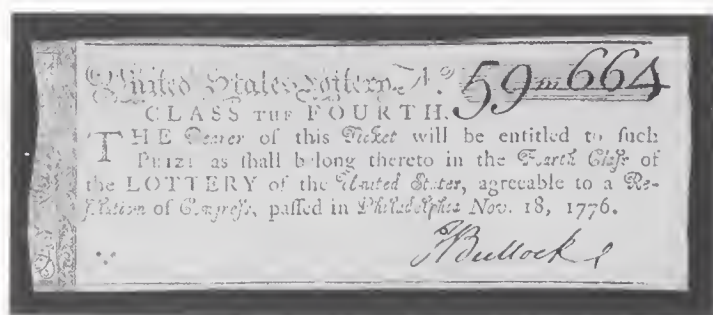 United States Lottery. Nº. 59 m 664
CLASS THE FOURTH.
THE Bearer of this Ticket will be entitled to ſuch
PRIZE as ſhall belong thereto in the Fourth Claſs of
the LOTTERY of the United States, agreeable to a Re-
ſolution of Congreſs, paſſed in Philadelphia Nov. 18, 1776.
Bullock